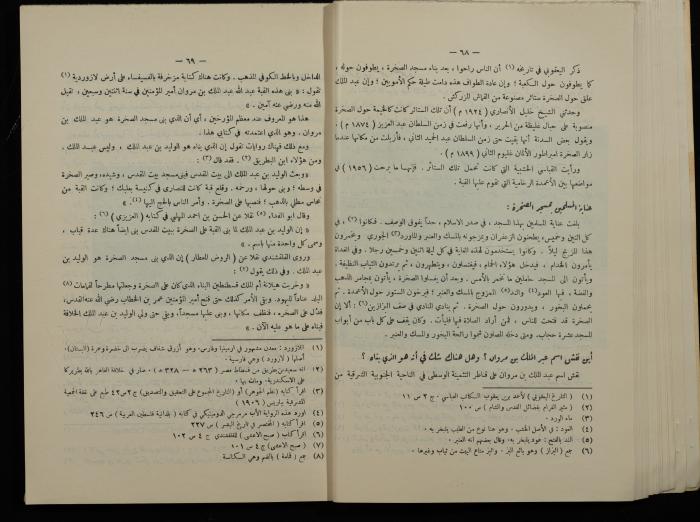 — ٦٨ —
ذكر اليعقوبي في تاريخه (١) أن الناس راحوا ، بعد بناء مسجد الصخرة ، يطوفون حوله ،
كما يطوفون حول الكعبة ؛ وإن عادة الطواف هذه دامت طيلة حكم الأمويين ؛ وإن عبد الملك
علق حول الصخرة ستائر مصنوعة من القماش المزركش .
وحدثني الشيخ خليل الأنصاري (١٩٢٤ م) ، أن تلك الستائر كانت كالخيمة حول الصخرة
منصوبة على حبال غليظة من الحرير ، وأنها رفعت في زمن السلطان عبد العزيز (١٨٧٤ م) ،
ويقول بعض السدنة أنها بقيت حتى زمن السلطان عبد الحميد الثاني ، فأزيلت من مكانها عندما
زار الصخرة امبراطور الألمان غليوم الثاني (١٨٩٩ م) .
ورأيت القبابين الخشبية التي كانت تحمل تلك الستائر . فإنها ما برحت (١٩٥٦) في
مواضعها بين الأعمدة الرخامية التي تقوم عليها القبة .
عناية المسلمين بمسجد الصخرة :
بلغت عناية المسلمين بهذا المسجد ، في صدر الاسلام ، حداً يفوق الوصف . فكانوا (٢) ، في
كل اثنين وخميس ، يطحنون الزعفران ويمزجونه بالمسك والعنبر والماورد (٣) الجوري ويخمرون
هذا المزيج ليلاً . وكانوا يستخدمون لهذه الغاية في كل ليلة اثنين وخمسين رجلاً . وفي الغداة
يأمرون الخدام ، فيدخل هؤلاء الحمام ، فيغتسلون ، ويتطهرون ، ثم يرتدون الثياب النظيفة .
ويأتون الى المسجد حاملين ما تخمر بالأمس . وبعد أن يغسلوا الصخرة ، يأتون بمجامر الذهب
والفضة ، فيها العود (٤) والند (٥) الممزوج بالمسك والعنبر ؛ فيرخون الستور حول الأعمدة . ثم
يحملون البخور ، ويدورون حول الصخرة . ثم ينادي المنادي في صف البزازين (٦) : ألا إن
الصخرة قد فتحت للناس ، فمن أراد الصلاة فيها فليأت . وكان يقف على كل باب من أبواب
المسجد عشرة حجاب . ومتى دخله المصلون شموا رائحة البخور والمسك والعنبر .
أين نقش اسم عبد الملك بن مروان ؟ وهل هناك شك في أنه هو الذي بناه ؟
نقش اسم عبد الملك بن مروان على قناطر التثمينة الوسطى في الناحية الجنوبية الشرقية من
(١) التاريخ اليعقوبي لأحمد بن يعقوب الكاتب العباسي . ج ٢ ص ١١
(٢) مثير الغرام بفضائل القدس والشام ) ص ١٠٠
(٣) ماء الورد .
(٤) العود : في الأصل الخشب . وهو هنا نوع من الطيب يتبخر به .
(٥) الند بالفتح : عود يتبخر به . وقال بعضهم أنه العنبر .
(٦) جمع ( البزاز ) وهو بائع البز . والبز متاع البيت من ثياب وغيرها .
— ٦٩ —
الداخل وبالخط الكوفي المذهب . وكانت هناك كتابة مزخرفة بالفسيفساء على أرض لازوردية (١)
تقول : « بنى هذه القبة عبد الله عبد الملك بن مروان أمير المؤمنين في سنة اثنتين وسبعين ، تقبل
الله منه ورضي عنه آمين . »
هذا هو المعروف عند معظم المؤرخين ، أي أن الذي بنى مسجد الصخرة هو عبد الملك بن
مروان . وهو الذي اعتمدته في كتابي هذا .
ومع ذلك فهناك روايات تقول إن الذي بناه هو الوليد بن عبد الملك ، وليس عبد الملك .
ومن هؤلاء ابن البطريق (٢) . فقد قال (٣) :
« وبعث الوليد بن عبد الملك الى بيت المقدس فبنى مسجد بيت المقدس ، وشيده ، وصير الصخرة
في وسطه ؛ وبنى حولها ، ورخمه . وقلع قبة كانت للنصارى في كنيسة بعلبك ؛ وكانت القبة من
نحاس مطلي بالذهب ؛ فنصبها على الصخرة . وأمر الناس بالحج اليها (٤) . »
وقال ابو الفداء (٥) نقلا عن الحسن بن احمد المهلبي في كتابه ( العزيزي ) (٦) :
« إن الوليد بن عبد الملك لما بنى القبة على الصخرة ببيت المقدس بنى ايضاً هناك عدة قباب ،
وسمى كل واحدة منها باسم . »
وروى القلقشندي نقلا عن ( الروض المعطار ) إن الذي بنى مسجد الصخرة هو الوليد بن
عبد الملك . وفي ذلك يقول (٧) :
« وخربت هيلانة أم الملك قسطنطين البناء الذي كان على الصخرة وجعلتها مطرحاً لقمامات (٨)
البلد عناداً لليهود . وبقي الأمر كذلك حتى فتح أمير المؤمنين عمر بن الخطاب رضي الله عنه القدس ،
فدل على الصخره ، فنظف مكانها ، وبنى عليها مسجداً . وبقي حتى ولي الوليد بن عبد الملك الخلافة
فبناه على ما هو عليه الآن . »
(١) اللازورد : معدن مشهور في ارمينيا وفارس . وهو أزرق شفاف يضرب الى خضرة وحمرة (البستان) .
أصلها ( لازورد ) وهي فارسية .
(٢) انه سعيد بن بطريق من فسطاط مصر ( ٢٦٣ هـ — ٣٢٨ هـ ) . صار في خلافة القاهر بالله بطريركا
على الاسكندرية .
(٣) اقرأ كتابه ( نظم الجوهر ) أو ( التاريخ المجموع على التحقيق والتصديق ) ج ٢ ص ٤٢ طبع على نفقة الجمعية
الشرقية بباريس ( ١٩٠٦ )
(٤) اورد هذه الرواية الأب مرمرجي الدومينيكي في كتابه ( بلدانية فلسطين العربية ) ص ٢٤٦
(٥) اقرأ كتابه ( المختصر في تاريخ البشر ) ص ٢٢٧
(٦) اقرأ كتاب ( صبح الاعشى ) للقلقشندي ج ٤ ص ١٠٢
(٧) ( صبح الاعشى ) ج ٤ ص ١٠١
(٨) جمع ( قمامة ) بالضم وهي الكناسة